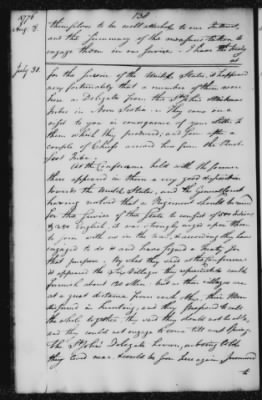 1776
Aug. 8.
130
themselves to be well attached to our Interest,
and the Summary of the measures taken to
engage them in our Service. I have the Treaty
at
July 31.
for the service of the United States, it happened
very fortunately that a number of them were
here a Delegate from the St. John's Mickmac
Tribes in Nova Scotia. They came on a
visit to you in consequence of your letter to
them which they produced, and soon after a
couple of Chiefs arrived here from the Penob-
scot Tribe.
At the Conference held with the former
there appeared in them a very good disposition
towards the United States, and the General Court
having ordered that a Regiment should be raised
for the service of this State to consist of 500 Indians
& 250 English, it was strongly urged upon them
to join with us in the War, & accordingly they have
engaged to do it and have signed a Treaty for
that purpose. By what they said at the Conference
it appeared the Six Villages they represented could
furnish about 120 Men. but as their villages are
at a great distance from each other, their Men
dispersed in hunting, and they proposed to get
the whole together, they said they should not be able,
and they could not engage to come till next Spring.
The St. John's Delegate however, on being told
they were near, said he would be here again
to